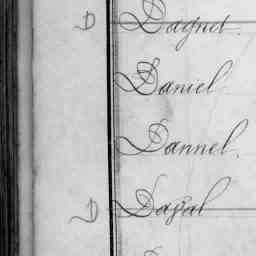 D Dagnet.
Daniel
Dannel.
D Dayal